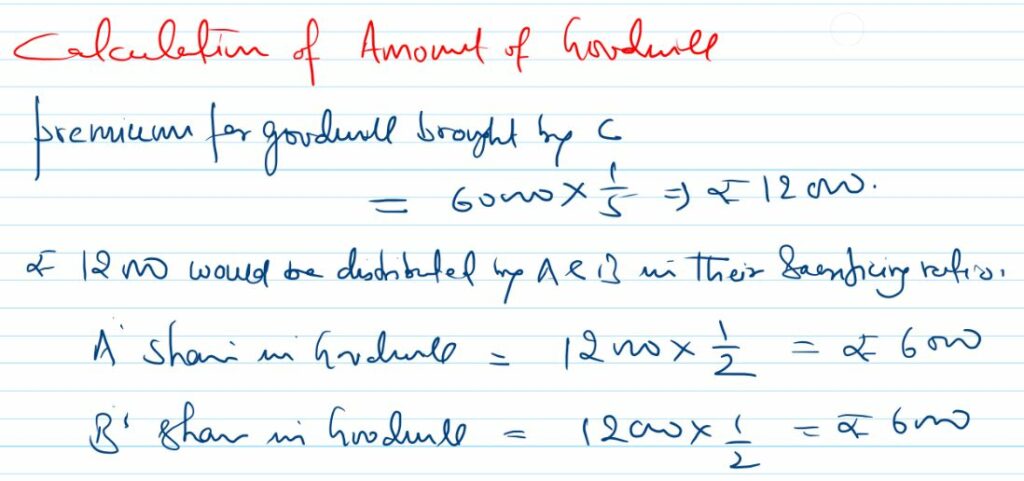 Calculation of Amount of Goodwill
premium for goodwill brought by C
= 60000 × 1/5 ⇒ ₹ 12000.
₹ 12000 would be distributed by A & B in their Sacrificing ratio.
A' Share in Goodwill = 12000 × 1/2 = ₹ 6000
B' Share in Goodwill = 12000 × 1/2 = ₹ 6000